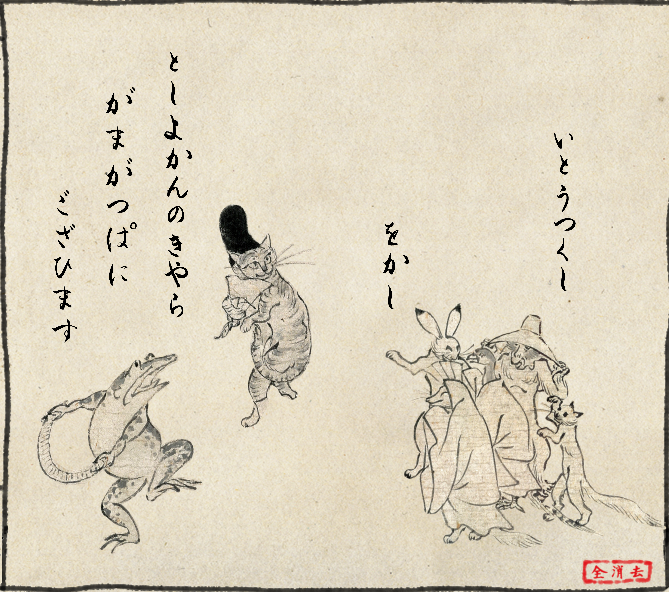 いとうつくし
をかし
としよかんのきやら
がまがつぱに
ござひます
全消去